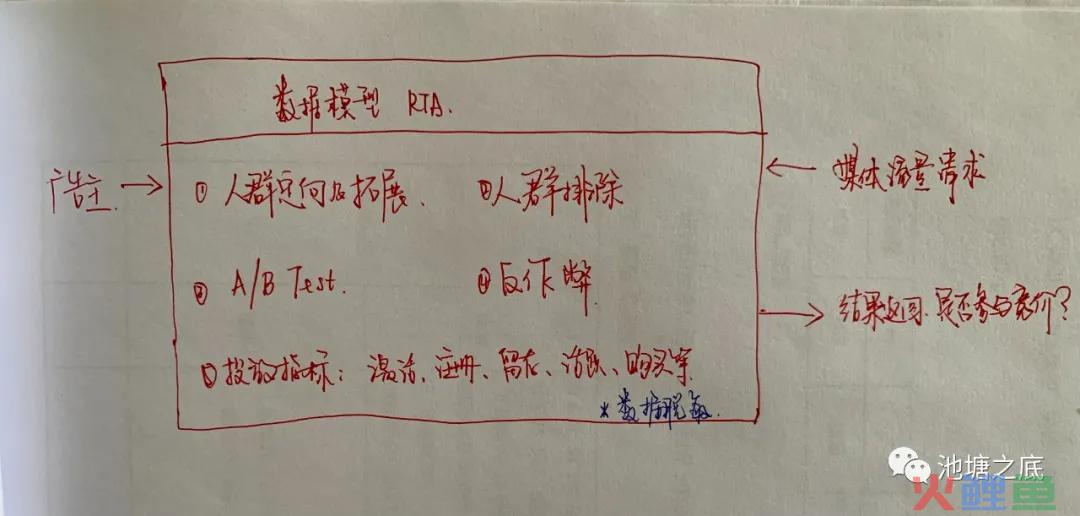 数据模型 RTA.
广告主 → ① 人群定向及拓展. ②人群排除 ← 媒体流量请求
③ A/B Test. ④反作弊. → 结果返回. 是否参与竞价?
⑤投放指标: 激活、注册、留存、活跃、购买率
*数据脱敏.
池塘之底
火鲤鱼